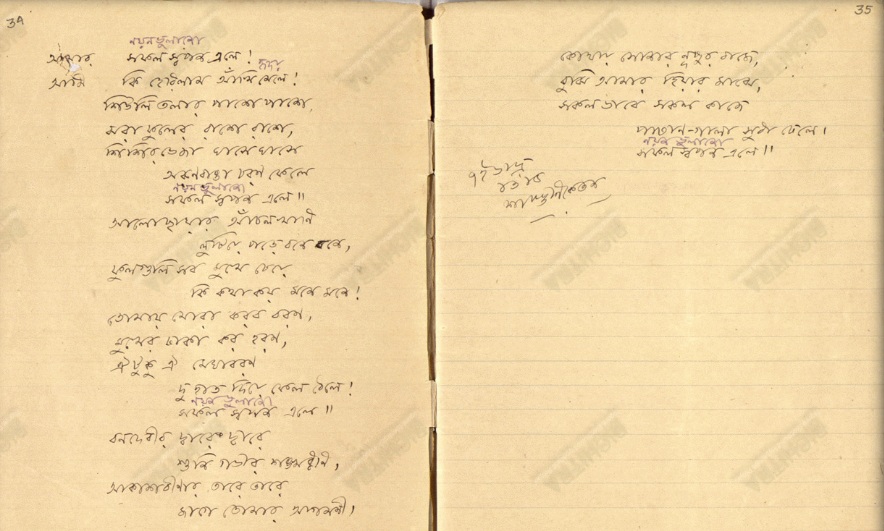 34
নয়নভুলানো
আমার সফল স্বপন এলে!
হৃদয়
আমি কি হেরিলাম আঁখি মেলে!
শিউলি তলার পাশে পাশে,
ঝরা ফুলের রাশে রাশে,
শিশিরভেজা ঘাসে ঘাসে
অরুণরাঙা চরণ ফেলে
নয়নভুলানো
সফল স্বপন এলে॥
আলোছায়ার আঁচল-খানি
লুটিয়ে পড়ে বনে বনে,
ফুলগুলি সব মুখে চেয়ে
কি কথা কয় মনে মনে!
তোমায় মোরা করব বরণ,
মুখের ঢাকা কর হরণ,
ঐটুকু ঐ মেঘাবরণ
দু হাত দিয়ে ফেল ঠেলে!
নয়নভুলানো
সফল স্বপন এলে॥
বনদেবীর দ্বারে দ্বারে
শুনি গভীর শঙ্খধ্বনি,
আকাশবীণার তারে তারে
জাগে তোমার আগমনী।
35
কোথায় সোনার নূপুর বাজে,
বুঝি আমার হিয়ার মাঝে,
সকল ভাবে সকল কাজে
পাষাণ-গালা সুধা ঢেলে।
নয়নভুলানো
সফল স্বপন এলে॥
৭ই ভাদ্র
শান্তিনিকেতন